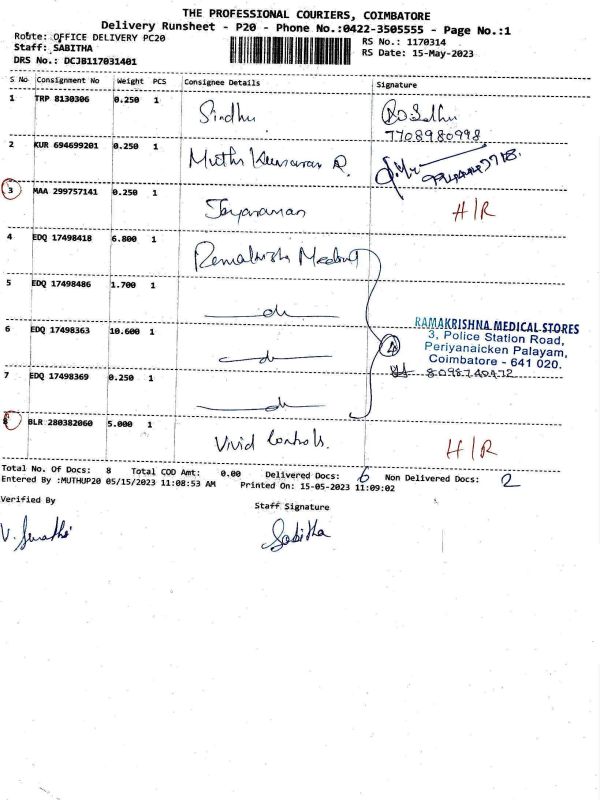 THE PROFESSIONAL COURIERS, COIMBATORE
Delivery Runsheet - P20 - Phone No.:0422-3505555 - Page No.:1
Route: OFFICE DELIVERY PC20
RS No.: 1170314
Staff: SABITHA
RS Date: 15-May-2023
DRS No.: DCJB117031401
S No Consignment No Weight PCS Consignee Details Signature
1 TRP 8130306 0.250 1 Sindhu
7708980998
2 KUR 694699201 0.250 1 Muthu Kumaran R.
3 MAA 299757141 0.250 1 Jayaraman H/R
4 EDQ 17498418 6.800 1 Ramakrishna Medical
5 EDQ 17498486 1.700 1 do
6 EDQ 17498363 10.600 1 do
7 EDQ 17498369 0.250 1 do
4
RAMAKRISHNA MEDICAL STORES
3, Police Station Road,
Periyanaicken Palayam,
Coimbatore - 641 020.
8098740472
8 BLR 280382060 5.000 1 Vivid Controls. H/R
Total No. Of Docs: 8 Total COD Amt: 0.00 Delivered Docs: 6 Non Delivered Docs: 2
Entered By :MUTHUP20 05/15/2023 11:08:53 AM Printed On: 15-05-2023 11:09:02
Verified By Staff Signature
Sabitha